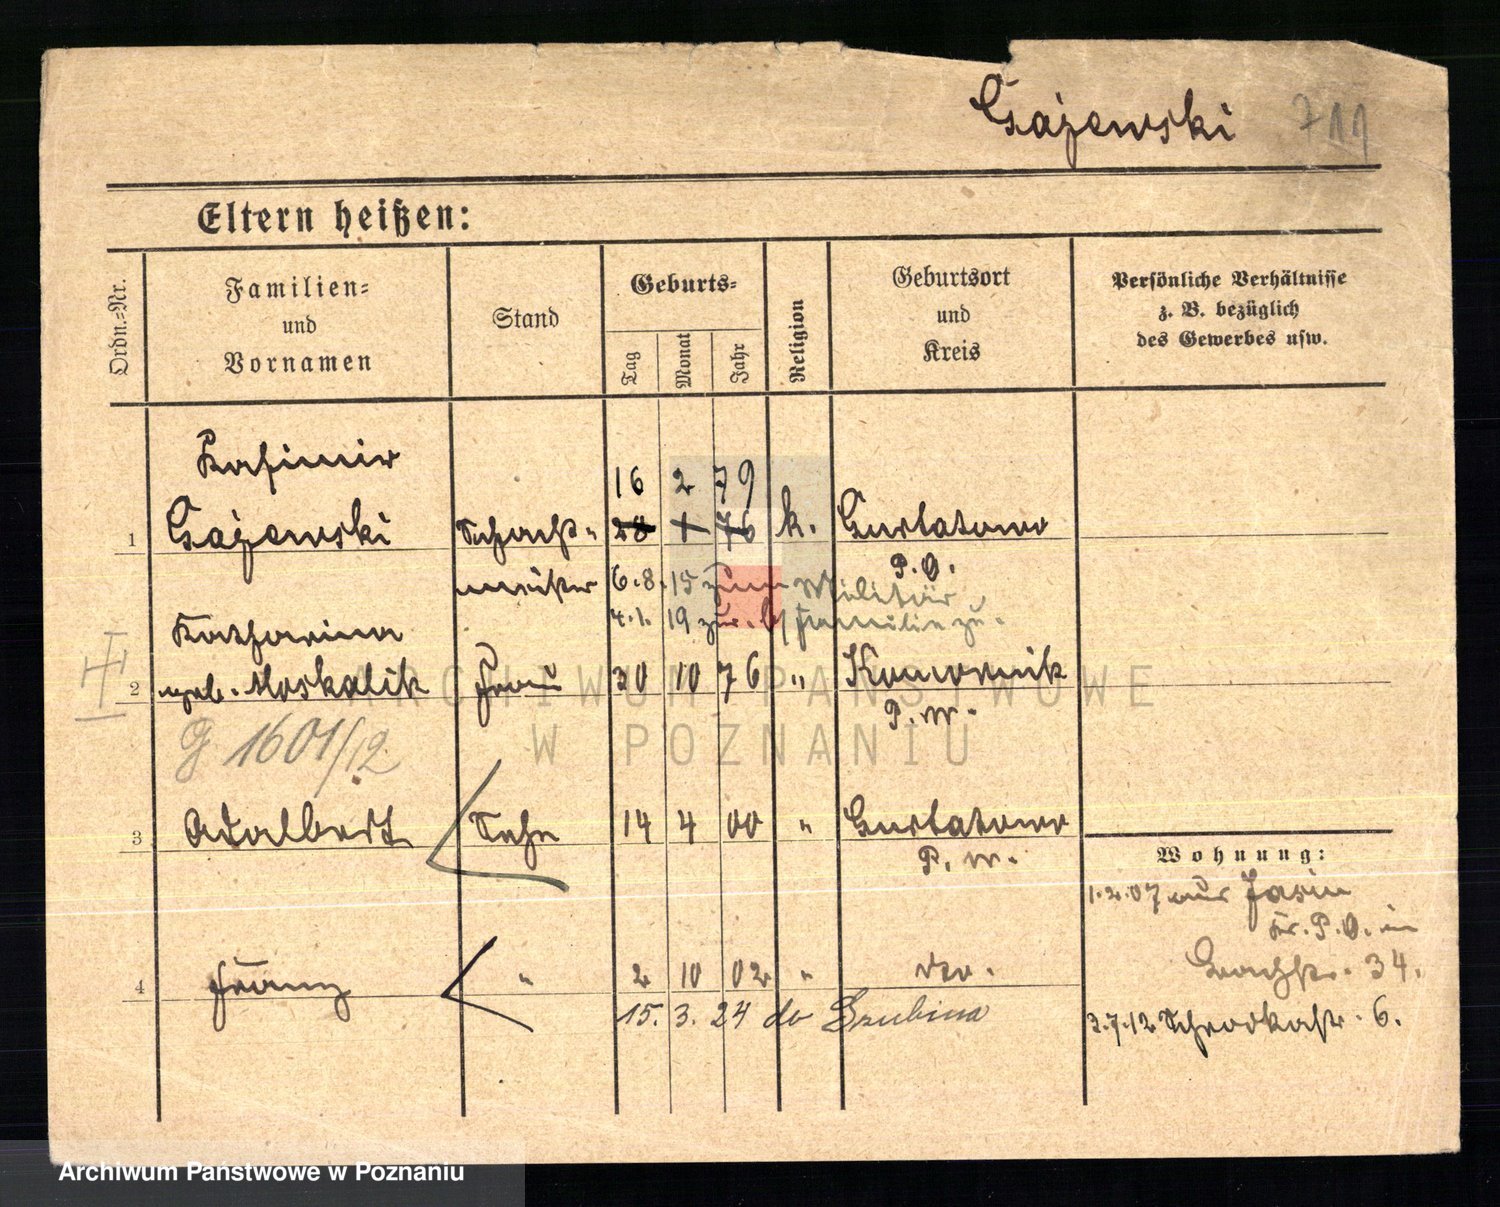 Gajewski 711
Eltern heißen:
Ordn.-Nr.
Familien- und Vornamen
Stand
Geburts-
Tag
Monat
Jahr
Religion
Geburtsort und Kreis
Persönliche Verhältnisse z. B. bezüglich des Gewerbes usw.
Kasimir
16 2 79
1 Gajewski Schacht- 28 1 76 k. Gurtatowo
P.O.
meister 6.8.15 zum Militär,
4.1.19 zur Familie zu.
Katharina
2 geb. Moskalik Frau 30 10 76 " Komornik
P.W.
G 1601/12
3 Adalbert Sohn 14 4 00 " Gurtatowo
P. W.
Wohnung:
1.2.07 aus Jasin
Kr. P.O. in
34.
4 Franz " 2 10 02 " do.
15. 3. 24 do Szubina
3.7.12 Schrodkastr. 6.
ARCHIWUM PAŃSTWOWE
W POZNANIU
Archiwum Państwowe w Poznaniu